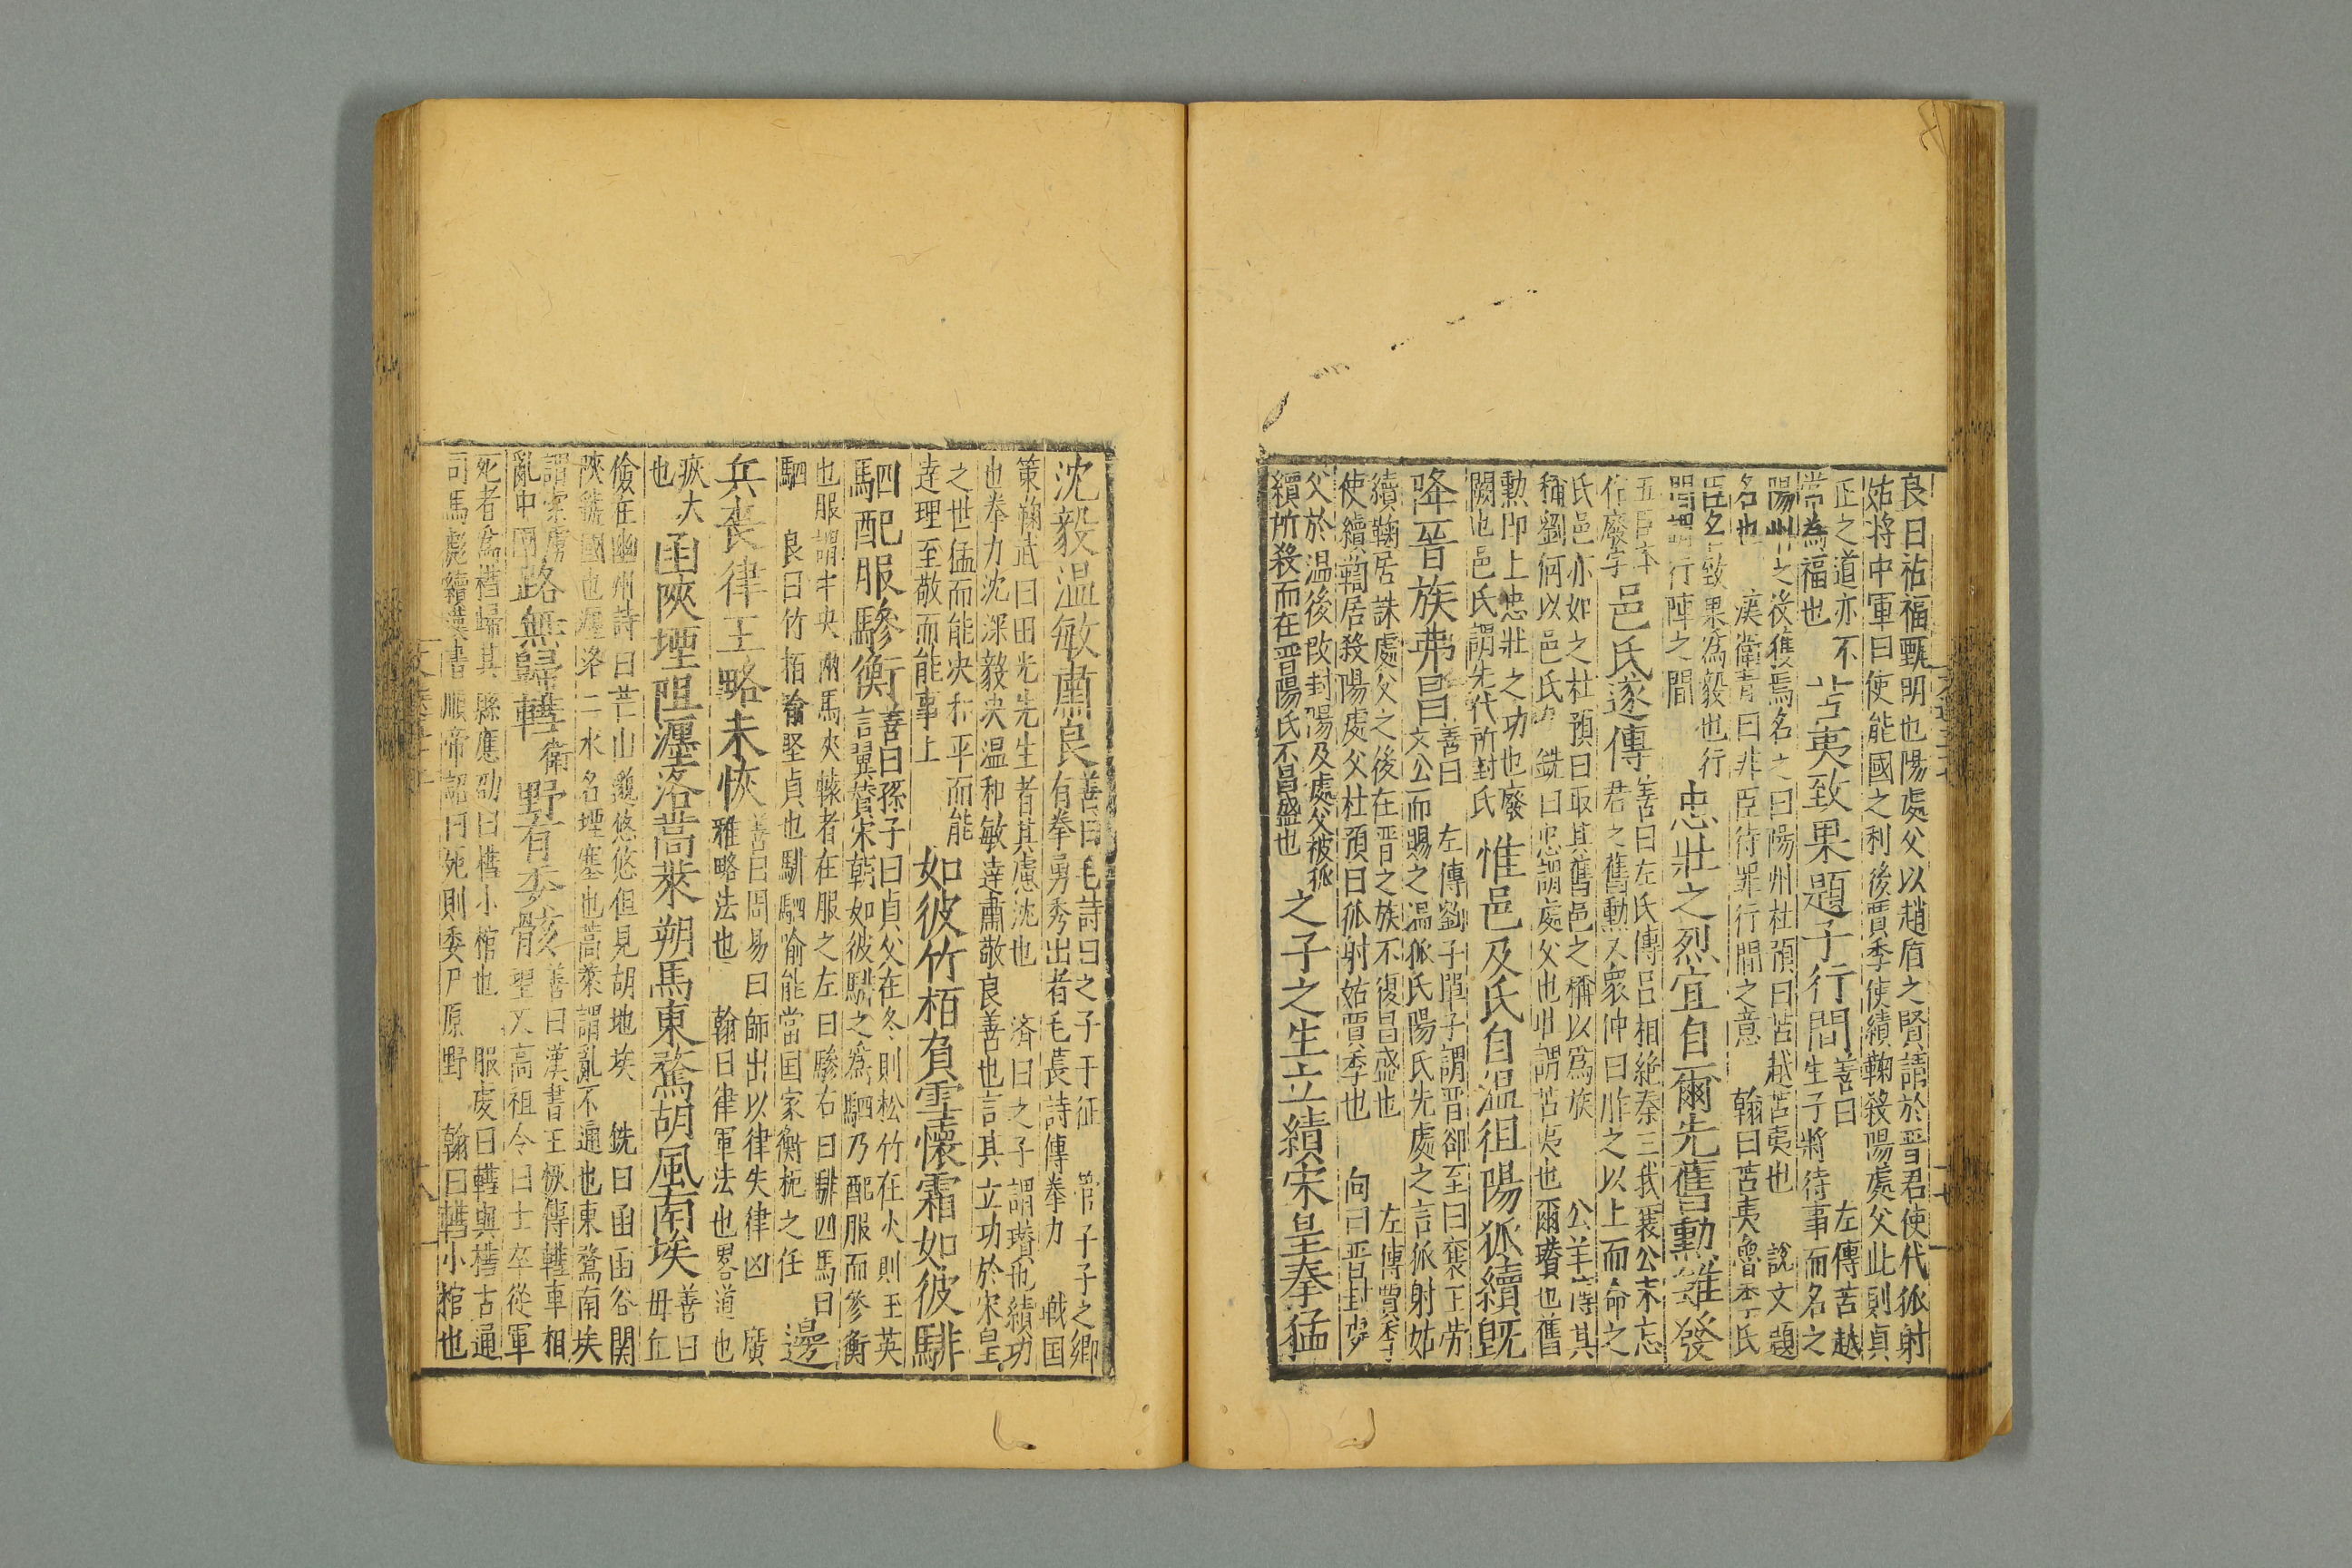 良曰祜福甄明也陽處父以趙盾之賢請於晉君使代狐射
姑將中軍曰使能國之利後賈季使續鞫殺陽處父此則貞
正之道亦不
常為福也
苦夷致果題子行間
善曰左傳苦越
生子將待事而名之
陽州之役獲焉名之曰陽州杜預曰苦越苦夷也 說文題
名也 漢衛青曰非臣待罪行間之意 翰曰苦夷魯季氏
臣名致果為毅也行
間謂行陣之間
忠壯之烈宜自爾先舊勳雖發
五臣本
作廢字
邑氏遂傳
善曰左氏傳呂相絕秦曰我襄公未忘
君之舊勳又衆仲曰胙之以土而命之
氏邑亦如之杜預曰取其舊邑之稱以為族 公羊傳其
稱劉何以邑氏也 銑曰忠謂處父也壯謂苦夷也爾瓚也舊
勲即上忠壯之功也廢
闕也邑氏謂先代所封氏
惟邑及氏自温徂陽狐續旣
降晉族弗昌
善曰左傳劉子單子謂晉郤至曰襄王勞
文公而賜之温狐氏陽氏先處之言狐射姑
續鞫居誅處父之後在晉之族不復昌盛也 左傳賈季
使續鞫居殺陽處父杜預曰狐射姑賈季也 向曰晉封處
父於温後改封陽及處父被狐
續所殺而在晉陽氏不昌盛也
之子之生立績宋皇拳猛
沈毅温敏肅良
善曰毛詩曰之子于征 管子子之鄉
有拳勇秀出者毛萇詩傳拳力 戰国
策鞫武曰田光先生者其慮沈也 濟曰之子謂瓚也績功
也拳力沈深毅决温和敏達肅敬良善也言其立功於宋皇
之世猛而能决和平而能
達理至敬而能事上
如彼竹栢負雪懷霜如彼騑
駟配服驂衡
善曰孫子曰貞父在冬則松竹在火則玉英
言翼贊宋朝如彼騑之為駟乃配服而參衡
也服謂中央兩馬夾轅者在服之左曰驂右曰騑四馬曰
駟 良曰竹栢喻堅貞也騑駟喻能當国家衡軛之任
邊
兵喪律王略未恢
善曰周易曰師出以律失律凶 廣
雅略法也 翰曰律軍法也畧道也
恢大
也
函陝堙阻瀍洛蒿萊朔馬東騖胡風南埃
善曰毋丘
儉在幽州詩曰芒山邈悠悠但見胡地埃 銑曰函函谷関
陝虢國也瀍洛二水名堙塞也蒿萊謂亂不通也東騖南埃
謂索虜
亂中國
路無歸轊
衛
野有委骸
善曰漢書王恢傳轊車相
望又高祖令曰士卒從軍
死者為槥歸其縣應劭曰槥小棺也 服虔曰轊與槥古通
司馬彪續漢書順帝詔曰死則委尸原野 翰曰轊小棺也